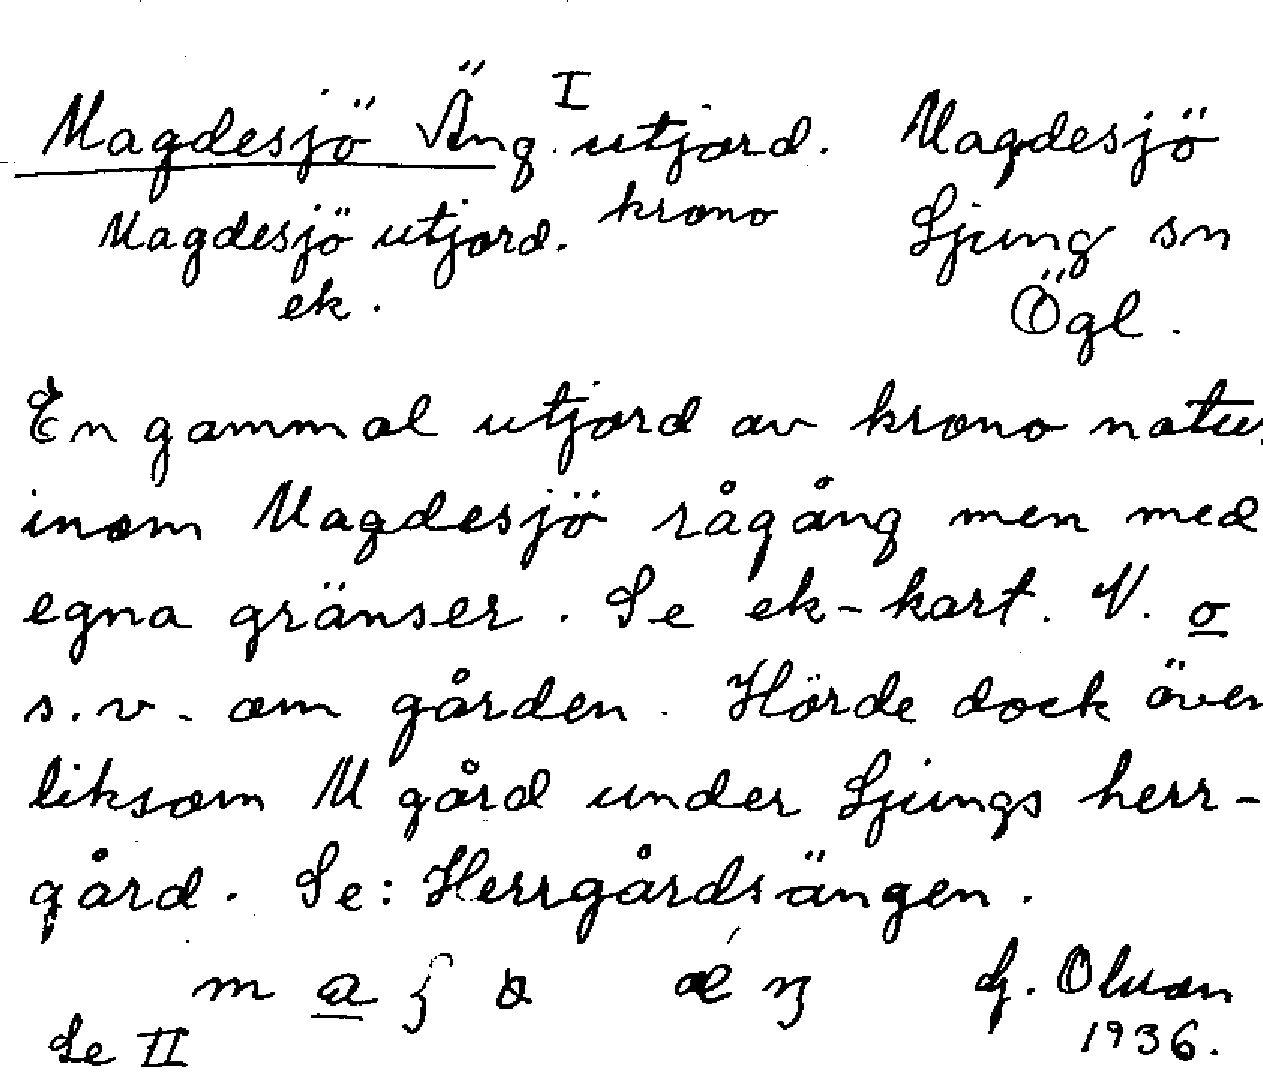 I
Magdesjö Äng. utjord. Magdesjö
Magdesjö utjord. krono Ljung sn
ek. Ögl.
En gammal utjord av krono natur
inom Magdesjö rågång men med
egna gränser. Se ek-kart. N. o
s.v. om gården. Hörde dock även
liksom M gård under Ljungs herr-
gård. Se: Herrgårdsängen.
m a
Se II 1936.